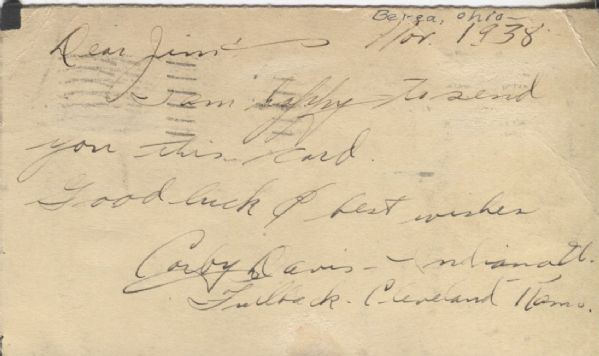 Berea, Ohio -
Nov. 1938
Dear Jim:
I am happy to send
you this card.
Good luck & best wishes
Corby Davis - Indiana U.
Fullback - Cleveland Rams.